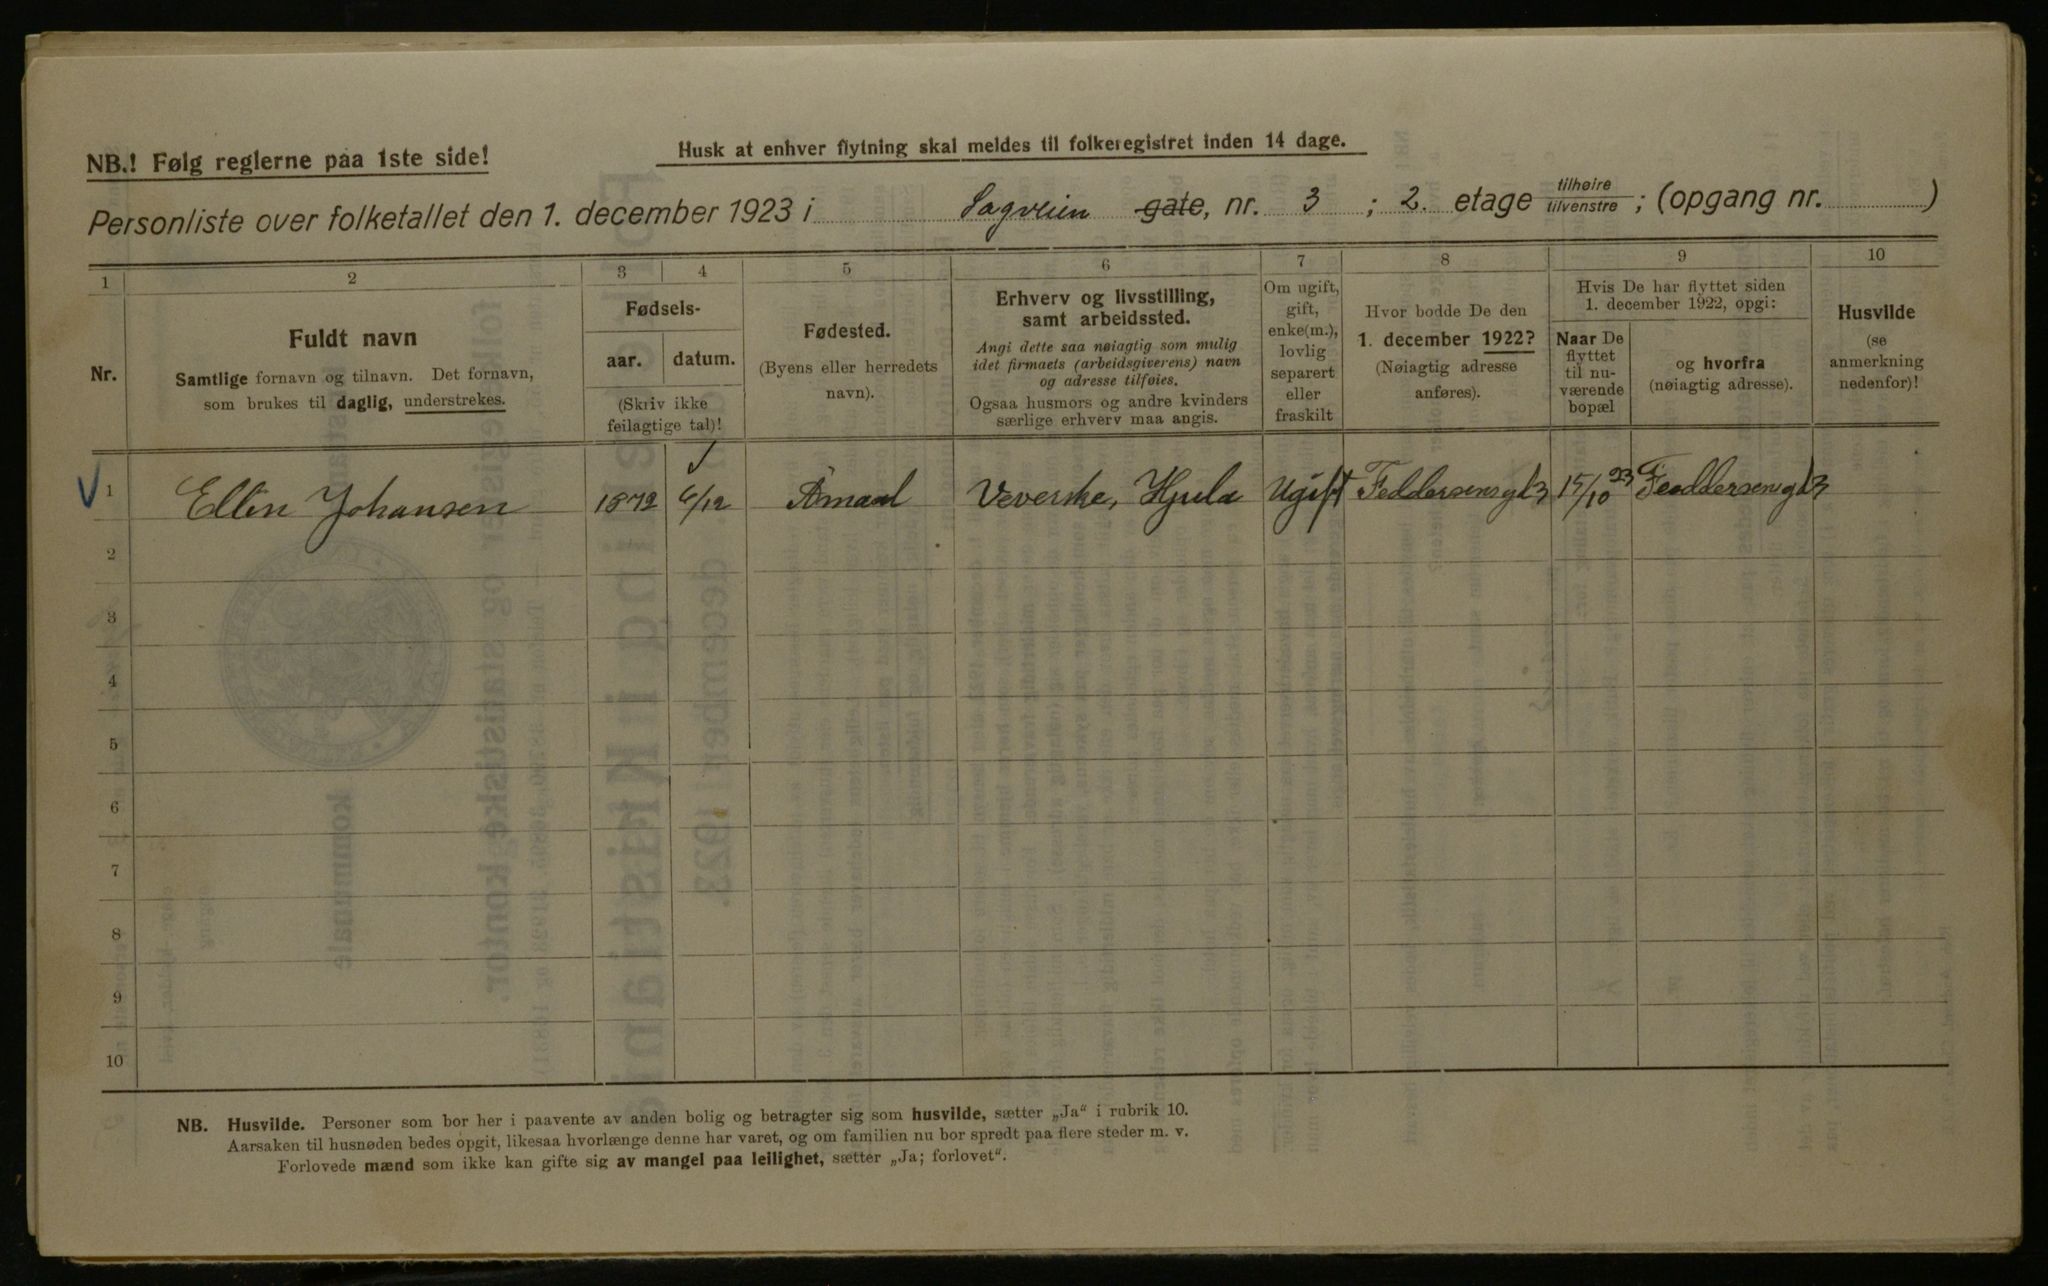 NB.! Følg reglerne paa 1ste side!
Husk at enhver flytning skal meldes til folkeregistret inden 14 dage.
Personliste over folketallet den 1. december 1923 i Sagveien gate, nr. 3 ; 2. etage tilhøire tilvenstre ; (opgang nr. )
1 2 3 4 5 6 7 8 9 10
Nr.
Fuldt navn
Samtlige fornavn og tilnavn. Det fornavn,
som brukes til daglig, understrekes.
Fødsels-
aar. datum.
(Skriv ikke
feilagtige tal)!
Fødested.
(Byens eller herredets
navn).
Erhverv og livsstilling,
samt arbeidssted.
Angi dette saa nøiagtig som mulig
idet firmaets (arbeidsgiverens) navn
og adresse tilføies.
Ogsaa husmors og andre kvinders
særlige erhverv maa angis.
Om ugift,
gift,
enke(m.),
lovlig
separert
eller
fraskilt
Hvor bodde De den
1. december 1922?
(Nøiagtig adresse
anføres).
Hvis De har flyttet siden
1. december 1922, opgi:
Naar De
flyttet
til nu-
værende
bopæl
og hvorfra
(nøiagtig adresse).
Husvilde
(se
anmerkning
nedenfor)!
1 Ellen Johansen 1872 6/12 Åmaal Veverske, Hjula Ugift Feddersensgt 3 15/10 23 Feddersensgt 3
2
3
4
5
6
7
8
9
10
NB. Husvilde. Personer som bor her i paavente av anden bolig og betragter sig som husvilde, sætter „Ja“ i rubrik 10.
Aarsaken til husnøden bedes opgit, likesaa hvorlænge denne har varet, og om familien nu bor spredt paa flere steder m. v.
Forlovede mænd som ikke kan gifte sig av mangel paa leilighet, sætter „Ja; forlovet“.